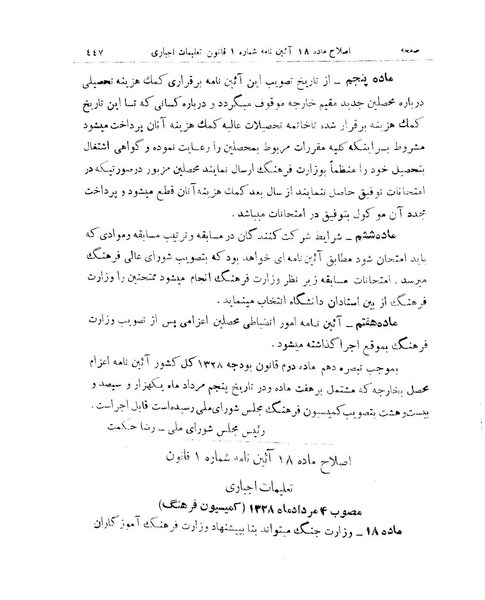 صفحه اصلاح ماده ۱۸ آئین نامه شماره ۱ قانون تعلیمات اجباری ۴۴۷
ماده پنجم ــ از تاریخ تصویب این آئین نامه برقراری کمك هزینه تحصیلی
درباره محصلین جدید مقیم خارجه موقوف میگردد و درباره کسانی که تا این تاریخ
کمك هزینه برقرار شده تاخاتمه تحصیلات عالیه کمك هزینه آنان پرداخت میشود
مشروط براینکه کلیه مقررات مربوط بمحصلین را رعایت نموده و گواهی اشتغال
بتحصیل خود را منظماً بوزارت فرهنگ ارسال نمایند محصلین مزبور درصورتیکه در
امتحانات توفیق حاصل ننمایند از سال بعد کمك هزینه آنان قطع میشود و پرداخت
مجدد آن موکول بتوفیق در امتحانات میباشد .
ماده ششم ــ شرایط شرکت کنندگان در مسابقه و ترتیب مسابقه وموادی که
باید امتحان شود مطابق آئین نامه ای خواهد بود که بتصویب شورای عالی فرهنگ
میرسد . امتحانات مسابقه زیر نظر وزارت فرهنگ انجام میشود ممتحنین را وزارت
فرهنگ از بین استادان دانشگاه انتخاب مینماید .
ماده هفتم ــ آئین نامه امور انضباطی محصلین اعزامی پس از تصویب وزارت
فرهنگ بموقع اجرا گذاشته میشود .
بموجب تبصره دهم ماده دوم قانون بودجه ۱۳۲۸ کل کشور آئین نامه اعزام
محصل بخارجه که مشتمل برهفت ماده ودر تاریخ پنجم مرداد ماه یکهزار و سیصد و
بیست وهشت بتصویب کمیسیون فرهنگ مجلس شورای ملی رسیده است قابل اجراست .
رئیس مجلس شورای ملی ــ رضا حکمت
اصلاح ماده ۱۸ آئین نامه شماره ۱ قانون
تعلیمات اجباری
مصوب ۴ مردادماه ۱۳۲۸ (کمیسیون فرهنگ)
ماده ۱۸ ــ وزارت جنگ میتواند بنا بپیشنهاد وزارت فرهنگ آموزگاران